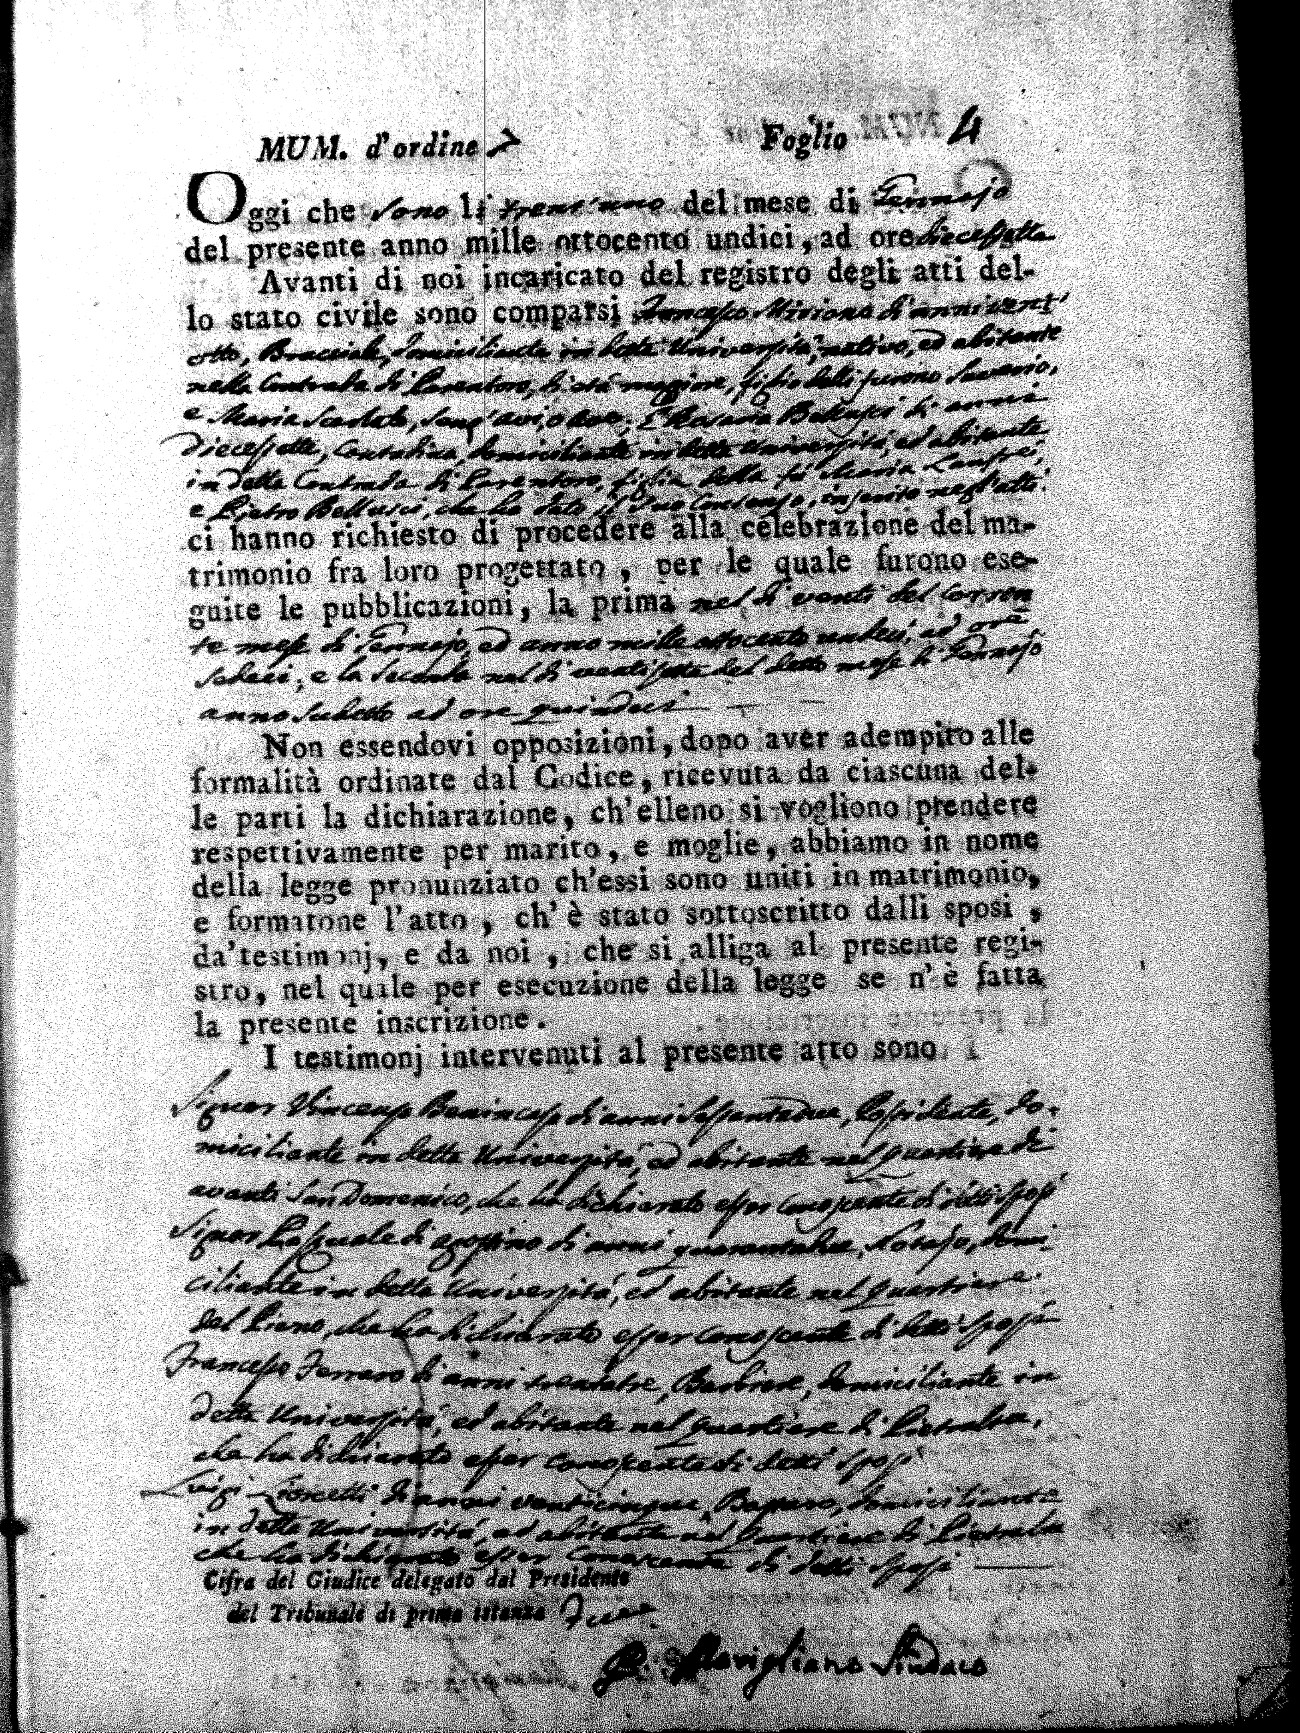 MUM. d'ordine 7 Foglio 4
Oggi che sono li trent'uno del mese di Gennajo
del presente anno mille ottocento undici, ad ore diecessette
Avanti di noi incaricato del registro degli atti del-
lo stato civile sono comparsi Francesco d'anni vent'
otto, Bracciale, domiciliante in detta Università, nativo, ed abitante
nella Contrada di Lorentoro, di età maggiore, figlio delli furono Saverio,
e Maria Scarlato, senz'avi, o ave; E Rosaria Bellusci di anni
diecessette, Contadina, domiciliante in detta Università, ed abitante
in detta Contrada di Lorentoro, figlia della fù Maria
e Pietro Bellusci, che ha dato il suo consenso, inserito negl'atti.
ci hanno richiesto di procedere alla celebrazione del ma-
trimonio fra loro progettato, per le quale furono ese-
guite le pubblicazioni, la prima nel dì venti del Corren
te mese di Gennajo, ed anno mille ottocento undici, ad ore
sedeci; e la seconda nel dì ventisette del detto mese di Gennajo
anno sudetto ad ore quindeci
Non essendovi opposizioni, dopo aver adempito alle
formalità ordinate dal Codice, ricevuta da ciascuna del-
le parti la dichiarazione, ch'elleno si vogliono prendere
respettivamente per marito, e moglie, abbiamo in nome
della legge pronunziato ch'essi sono uniti in matrimonio,
e formatone l'atto, ch'è stato sottoscritto dalli sposi,
da'testimonj, e da noi, che si alliga al presente regi-
stro, nel quale per esecuzione della legge se n'è fatta
la presente inscrizione.
I testimonj intervenuti al presente atto sono
Signor Vincenzo Benincasa di anni sessantadue, Possidente, do-
miciliante in detta Università, ed abitante nel quartiere di
avanti San Domenico, che ha dichiarato esser conoscente di detti sposi
Signor Pasquale di di anni quarantadue, Notajo, domi-
ciliante in detta Università, ed abitante nel quartiere
del Piano, che ha dichiarato esser conoscente di detti sposi
Francesco Ferraro di anni trentatre, Barbiere, domiciliante in
detta Università, ed abitante nel quartiere di Pietralta,
che ha dichiarato esser conoscente di detti sposi
Luigi di anni venticinque, domiciliante
in detta Università, ed abitante nel quartiere di Pietralta
che ha dichiarato esser conoscente di detti sposi
Cifra del Giudice delegato dal Presidente
del Tribunale di prima istanza
Mavigliano Sindaco